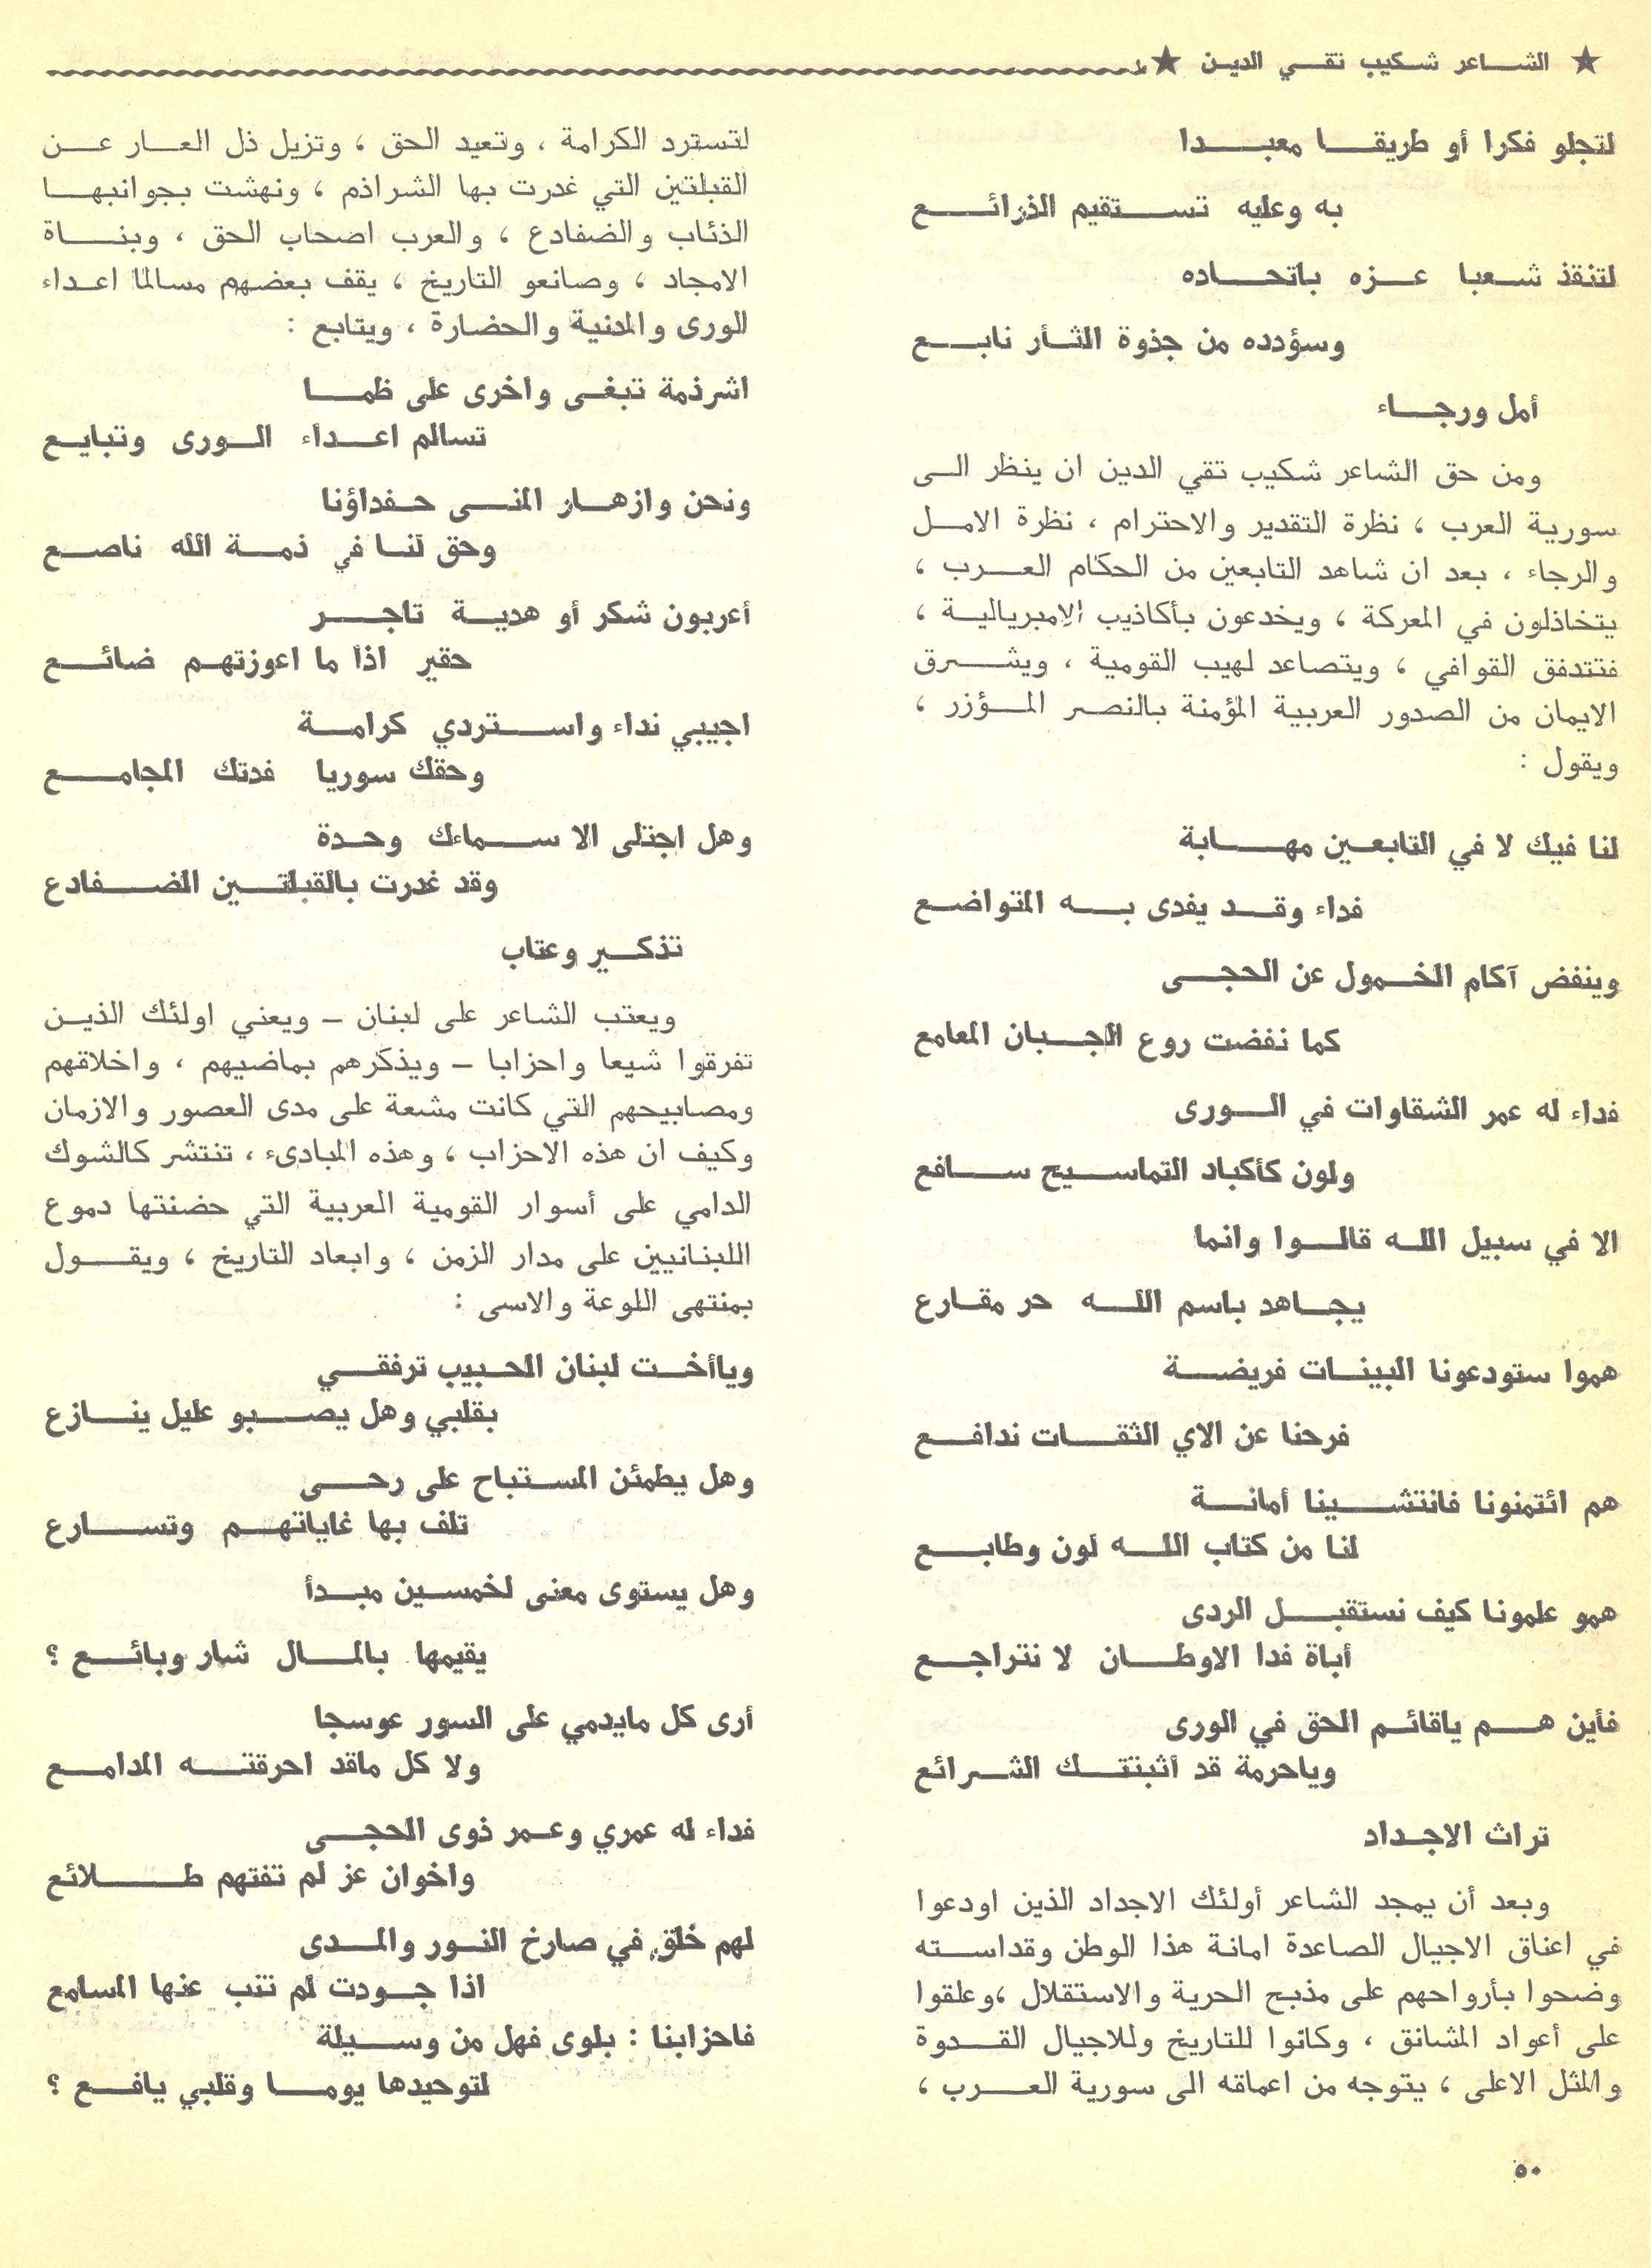 ★ الشاعر شكيب تقي الدين ★
لتجلو فكرا أو طريقا معبدا
به وعليه تستقيم الذرائع
لتنقذ شعبا عزه باتحاده
وسؤدده من جذوة الثأر نابع
أمل ورجاء
ومن حق الشاعر شكيب تقي الدين ان ينظر الى
سورية العرب ، نظرة التقدير والاحترام ، نظرة الامل
والرجاء ، بعد ان شاهد التابعين من الحكام العرب ،
يتخاذلون في المعركة ، ويخدعون بأكاذيب الامبريالية ،
فتتدفق القوافي ، ويتصاعد لهيب القومية ، ويشرق
الايمان من الصدور العربية المؤمنة بالنصر المؤزر ،
ويقول :
لنا فيك لا في التابعين مهابة
فداء وقد يفدى به المتواضع
وينفض آكام الخمول عن الحجى
كما نفضت روع الجبان المعامع
فداء له عمر الشقاوات في الورى
ولون كأكباد التماسيح سافع
الا في سبيل الله قالوا وانما
يجاهد باسم الله حر مقارع
هموا ستودعونا البينات فريضة
فرحنا عن الاي الثقات ندافع
هم ائتمنونا فانتشينا أمانة
لنا من كتاب الله لون وطابع
همو علمونا كيف نستقبل الردى
أباة فدا الاوطان لا نتراجع
فأين هم ياقائم الحق في الورى
وياحرمة قد أثبتتك الشرائع
تراث الاجداد
وبعد أن يمجد الشاعر أولئك الاجداد الذين اودعوا
في اعناق الاجيال الصاعدة امانة هذا الوطن وقداسته
وضحوا بأرواحهم على مذبح الحرية والاستقلال ،وعلقوا
على أعواد المشانق ، وكانوا للتاريخ وللاجيال القدوة
والمثل الاعلى ، يتوجه من اعماقه الى سورية العرب ،
لتسترد الكرامة ، وتعيد الحق ، وتزيل ذل العار عن
القبلتين التي غدرت بها الشراذم ، ونهشت بجوانبها
الذئاب والضفادع ، والعرب اصحاب الحق ، وبناة
الامجاد ، وصانعو التاريخ ، يقف بعضهم مسالما اعداء
الورى والمدنية والحضارة ، ويتابع :
اشرذمة تبغى واخرى على ظما
تسالم اعداء الورى وتبايع
ونحن وازهار المنى حفداؤنا
وحق لنا في ذمة الله ناصع
أعربون شكر أو هدية تاجر
حقير اذا ما اعوزتهم ضائع
اجيبي نداء واستردي كرامة
وحقك سوريا فدتك المجامع
وهل اجتلى الا سماءك وحدة
وقد غدرت بالقبلتين الضفادع
تذكير وعتاب
ويعتب الشاعر على لبنان – ويعني اولئك الذين
تفرقوا شيعا واحزابا – ويذكرهم بماضيهم ، واخلاقهم
ومصابيحهم التي كانت مشعة على مدى العصور والازمان
وكيف ان هذه الاحزاب ، وهذه المبادىء ، تنتشر كالشوك
الدامي على أسوار القومية العربية التي حضنتها دموع
اللبنانيين على مدار الزمن ، وابعاد التاريخ ، ويقول
بمنتهى اللوعة والاسى :
وياأخت لبنان الحبيب ترفقي
بقلبي وهل يصبو عليل ينازع
وهل يطمئن المستباح على رحى
تلف بها غاياتهم وتسارع
وهل يستوى معنى لخمسين مبدأ
يقيمها بالمال شار وبائع ؟
أرى كل مايدمي على السور عوسجا
ولا كل ماقد احرقته المدامع
فداء له عمري وعمر ذوى الحجى
واخوان عز لم تفتهم طلائع
لهم خلق في صارخ النور والمدى
اذا جودت لم تنب عنها المسامع
فاحزابنا : بلوى فهل من وسيلة
لتوحيدها يوما وقلبي يافع ؟
٥٠